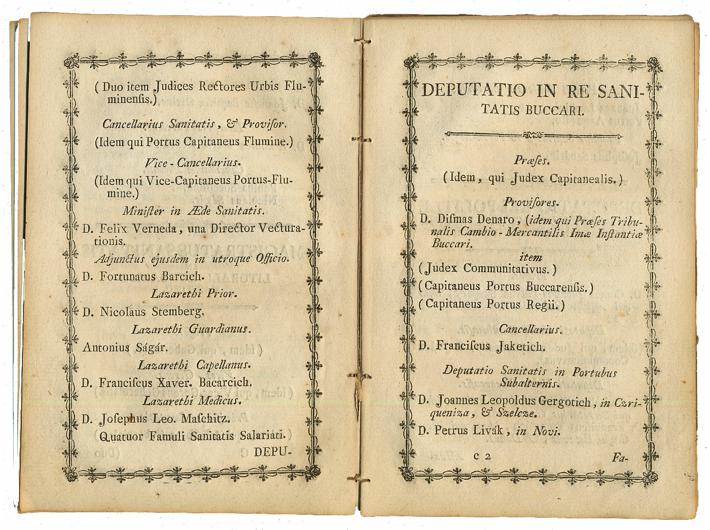 (Duo item Judices Rectores Urbis Flu-
minensis.)
Cancellarius Sanitatis, & Proviſor.
(Idem qui Portus Capitaneus Flumine.)
Vice-Cancellarius.
(Idem qui Vice-Capitaneus Portus-Flu-
mine.)
Miniſter in Æde Sanitatis.
D. Felix Verneda, una Director Vectura-
tionis.
Adjunctus ejusdem in utroque Officio.
D. Fortunatus Barcich.
Lazarethi Prior.
D. Nicolaus Stemberg.
Lazarethi Guardianus.
Antonius Ságár.
Lazarethi Capellanus.
D. Franciſcus Xaver. Bacarcich.
Lazarethi Medicus.
D. Joſephus Leo. Maſchitz.
Quatuor Famuli Sanitatis Salariati.
DEPU-
DEPUTATIO IN RE SANI-
TATIS BUCCARI.
Præſes.
(Idem, qui Judex Capitanealis.)
Proviſores.
D. Diſmas Denaro, (idem qui Præſes Tribu-
nalis Cambio-Mercantilis Imæ Inſtantiæ
Buccari.
item
(Judex Communitativus.)
(Capitaneus Portus Buccarensis.)
(Capitaneus Portus Regii.)
Cancellarius.
D. Franciſcus Jaketich.
Deputatio Sanitatis in Portubus
Subalternis.
D. Joannes Leopoldus Gergotich, in Czri-
queniza, & Szelcze.
D. Petrus Livák, in Novi.
c 2
Fa-